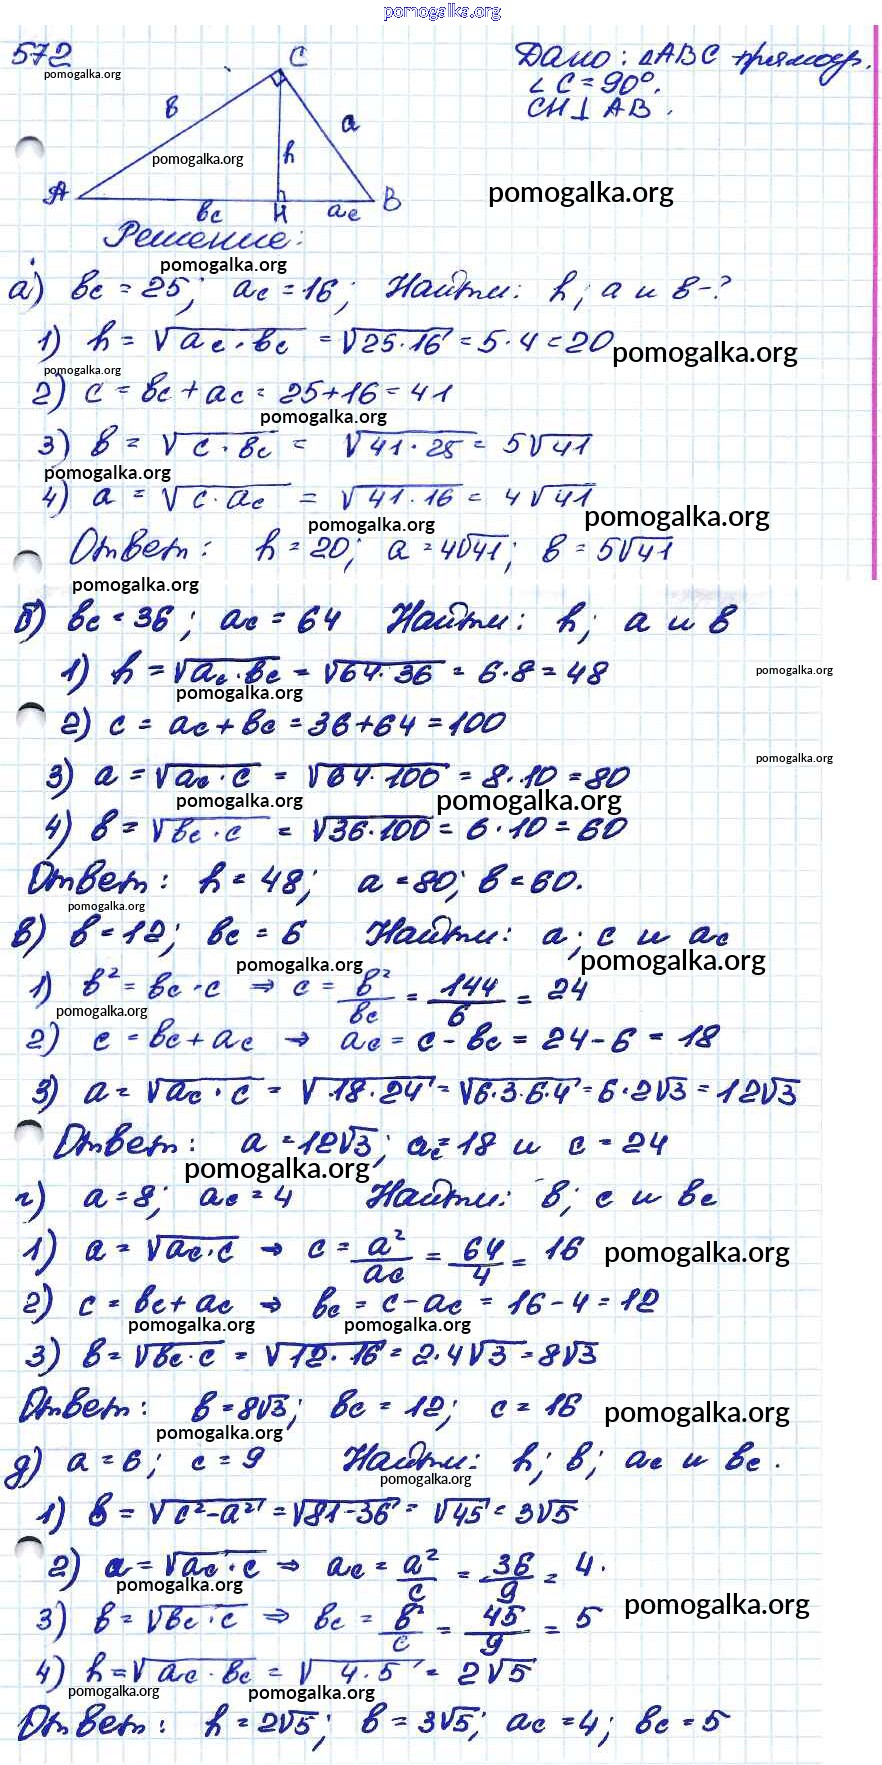 pomogalka.org
572
pomogalka.org
Дано: △ABC прямоуг.
∠C = 90°.
CH ⊥ AB.
C
в
a
pomogalka.org
h
A
B
вc
H
ac
pomogalka.org
Решение:
pomogalka.org
а) вc = 25; ac = 16; Найти: h; a и в-?
1) h = √ac·вc = √25·16 = 5·4 = 20
pomogalka.org
pomogalka.org
2) c = вc + ac = 25+16 = 41
pomogalka.org
3) в = √c·вc = √41·25 = 5√41
pomogalka.org
4) a = √c·ac = √41·16 = 4√41
pomogalka.org
pomogalka.org
Ответ: h = 20; a = 4√41; в = 5√41
pomogalka.org
б) вc = 36; ac = 64 Найти: h; a и в
1) h = √ac·вc = √64·36 = 6·8 = 48
pomogalka.org
pomogalka.org
2) c = ac + вc = 36+64 = 100
pomogalka.org
3) a = √ac·c = √64·100 = 8·10 = 80
pomogalka.org
pomogalka.org
4) в = √вc·c = √36·100 = 6·10 = 60
Ответ: h = 48; a = 80; в = 60.
pomogalka.org
в) в = 12; вc = 6 Найти: a; c и ac
pomogalka.org
pomogalka.org
1) в² = вc·c ⇒ c = в²/вc = 144/6 = 24
pomogalka.org
2) c = вc + ac → ac = c - вc = 24 - 6 = 18
3) a = √ac·c = √18·24 = √6·3·6·4 = 6·2√3 = 12√3
Ответ: a = 12√3; ac = 18 и c = 24
pomogalka.org
г) a = 8; ac = 4 Найти: в; c и вc
1) a = √ac·c → c = a²/ac = 64/4 = 16
pomogalka.org
2) c = вc + ac ⇒ вc = c - ac = 16 - 4 = 12
pomogalka.org
pomogalka.org
3) в = √вc·c = √12·16 = 2·4√3 = 8√3
Ответ: в = 8√3; вc = 12; c = 16
pomogalka.org
pomogalka.org
д) a = 6; c = 9 Найти: h; в; ac и вc.
pomogalka.org
1) в = √c²-a² = √81-36 = √45 = 3√5
2) a = √ac·c ⇒ ac = a²/c = 36/9 = 4.
pomogalka.org
pomogalka.org
3) в = √вc·c ⇒ вc = в²/c = 45/9 = 5
4) h = √ac·вc = √4·5 = 2√5
pomogalka.org
pomogalka.org
Ответ: h = 2√5; в = 3√5; ac = 4; вc = 5